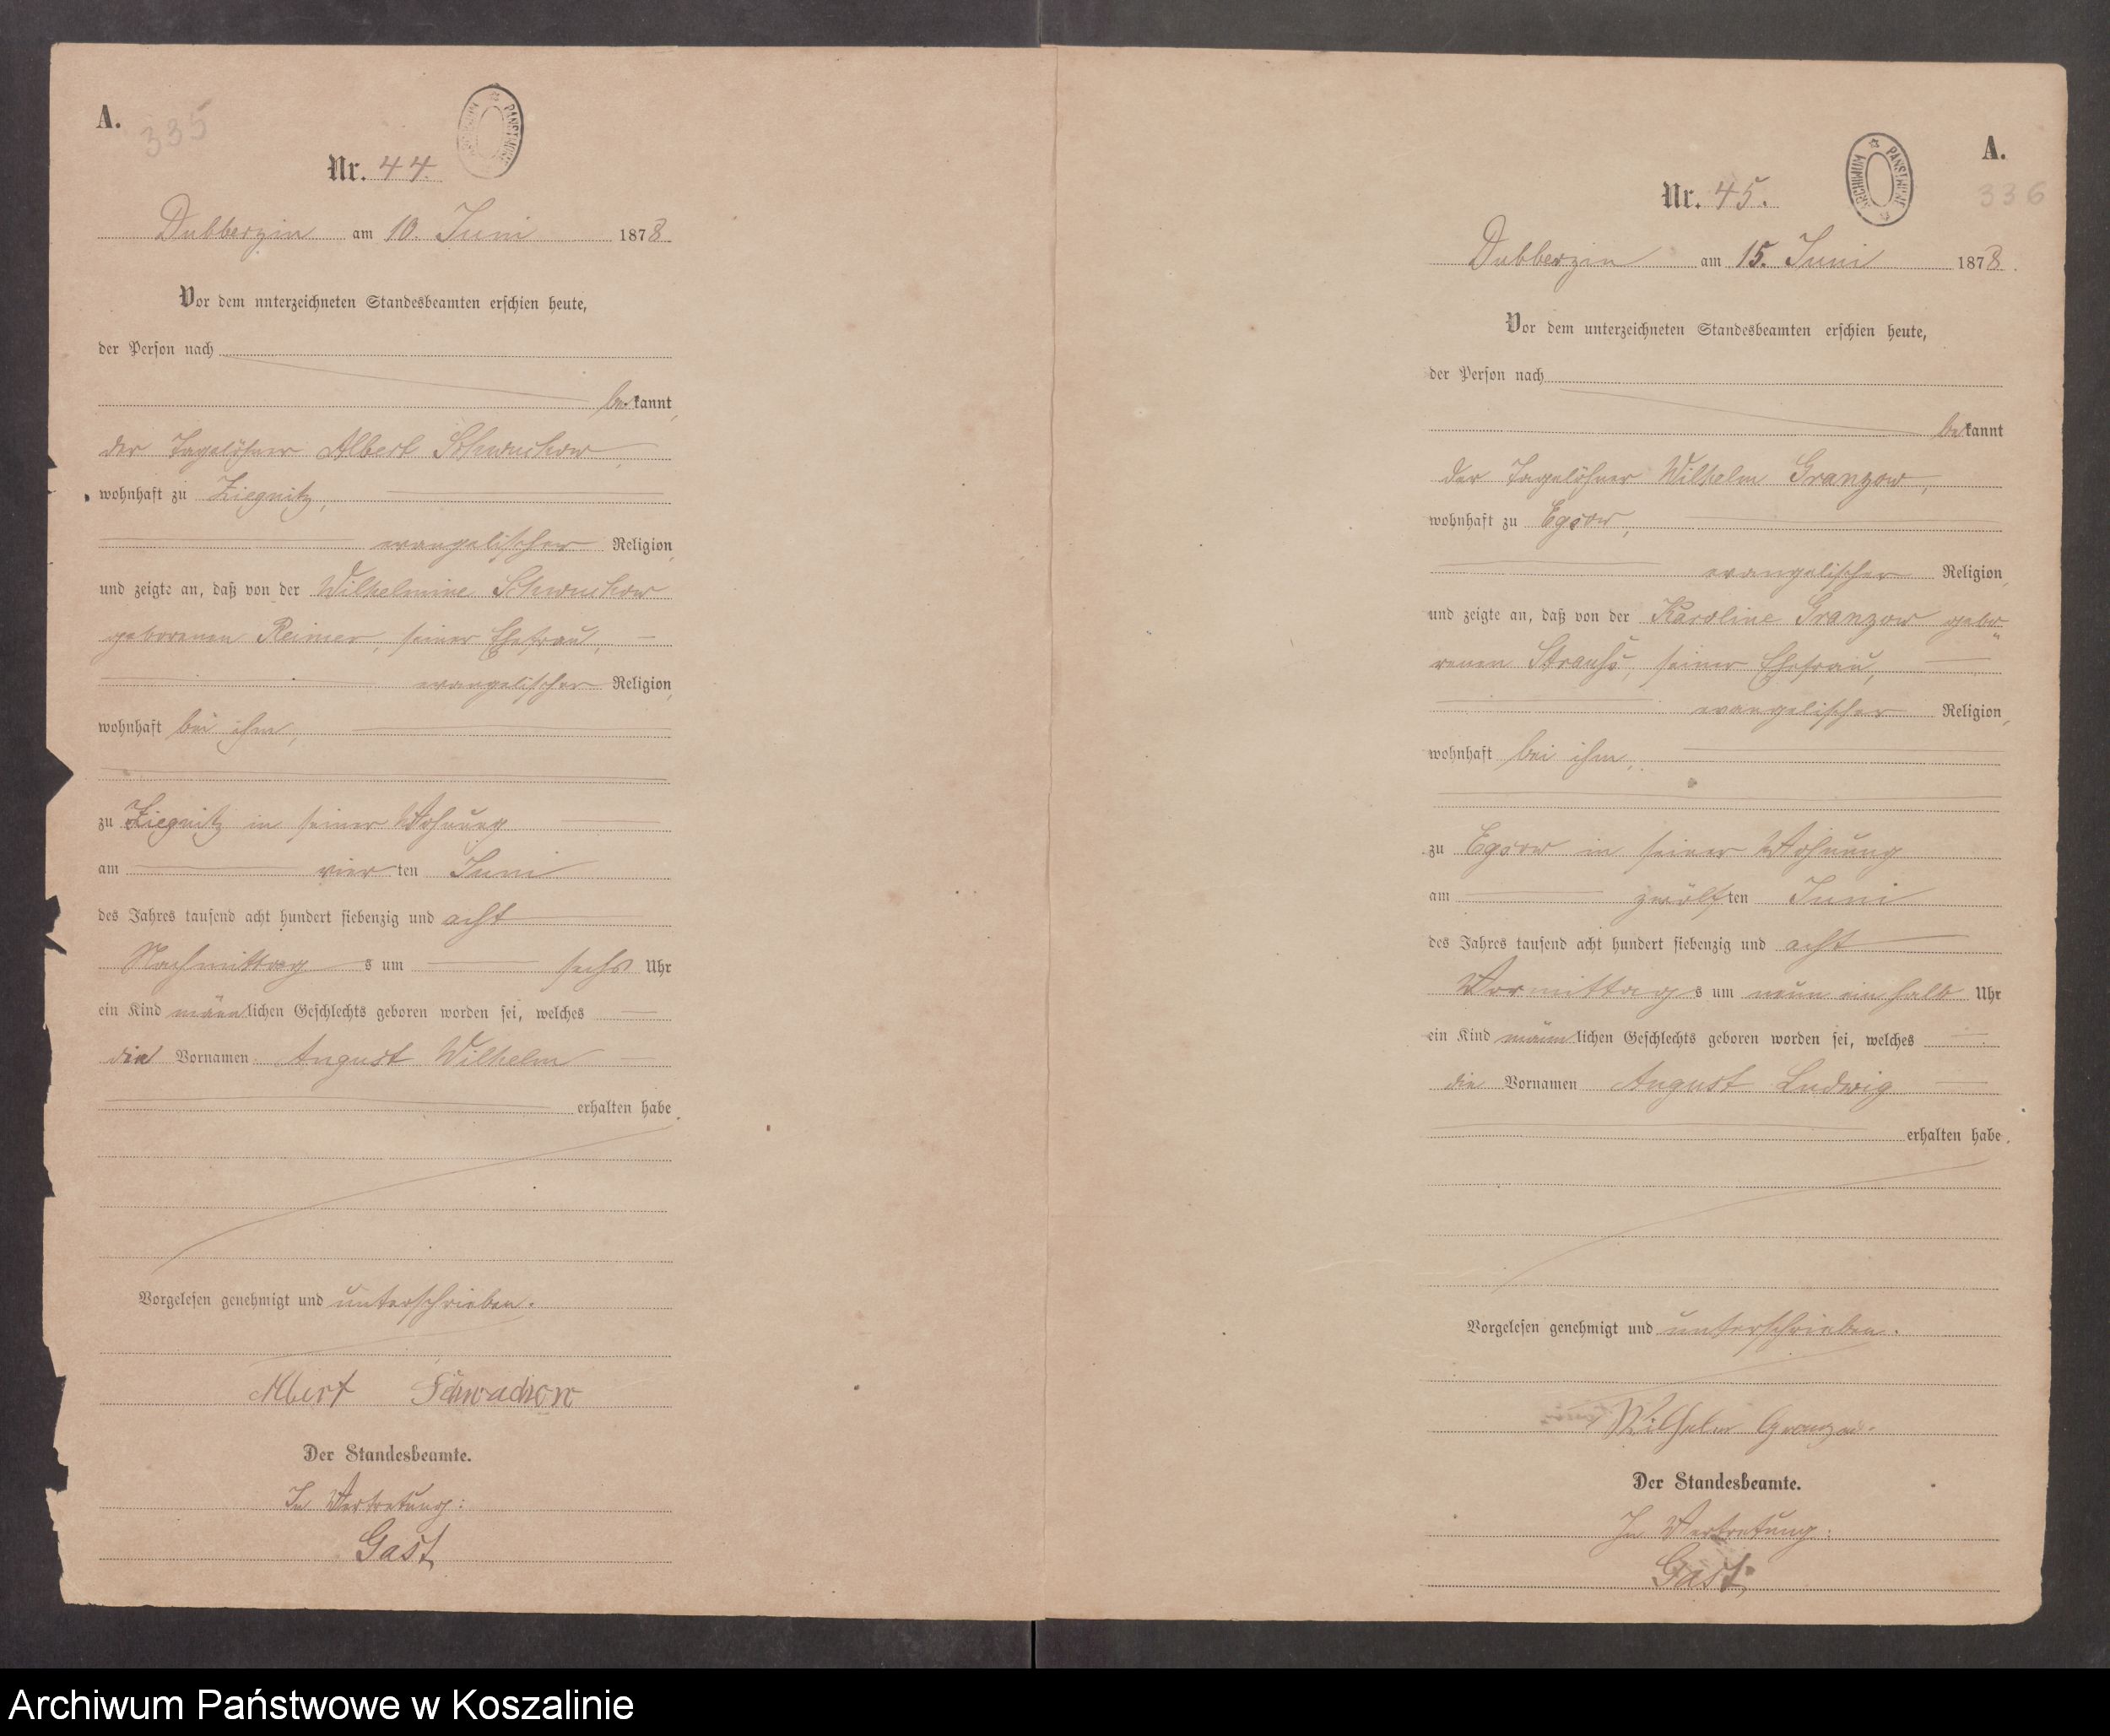 A.
335
ARCHIWUM PAŃSTWOWE
Nr. 44.
Dubberzin am 10. Juni 1878.
Vor dem unterzeichneten Standesbeamten erschien heute,
der Person nach
bekannt,
der Tagelöhner Albert Schwuchow,
wohnhaft zu Ziegnitz,
evangelischer Religion,
und zeigte an, daß von der Wilhelmine Schwuchow
geborenen Reimer, seiner Ehefrau,
evangelischer Religion,
wohnhaft bei ihm,
zu Ziegnitz in seiner Wohnung
am vierten Juni
des Jahres tausend acht hundert siebenzig und acht
Nachmittags um sechs Uhr
ein Kind männlichen Geschlechts geboren worden sei, welches
die Vornamen August Wilhelm
erhalten habe.
Vorgelesen genehmigt und unterschrieben.
Albert Schwachow
Der Standesbeamte.
In Vertretung:
Gast
A.
336
ARCHIWUM PAŃSTWOWE
Nr. 45.
Dubberzin am 15. Juni 1878.
Vor dem unterzeichneten Standesbeamten erschien heute,
der Person nach
bekannt
der Tagelöhner Wilhelm Granzow,
wohnhaft zu Egsow,
evangelischer Religion,
und zeigte an, daß von der Karoline Granzow gebo-
renen Strauß, seiner Ehefrau,
evangelischer Religion,
wohnhaft bei ihm,
zu Egsow in seiner Wohnung
am zwölften Juni
des Jahres tausend acht hundert siebenzig und acht
Vormittags um neun ein halb Uhr
ein Kind männlichen Geschlechts geboren worden sei, welches
die Vornamen August Ludwig
erhalten habe.
Vorgelesen genehmigt und unterschrieben.
Wilhelm Granzow.
Der Standesbeamte.
In Vertretung:
Gast
Archiwum Państwowe w Koszalinie